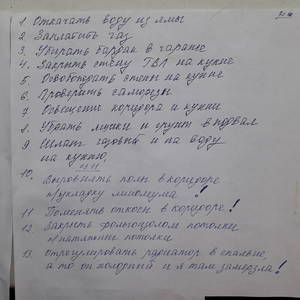 1. Откачать воду из ямы
2. Заплатить газ
3. Убирать бардак в гараже
4. Закрыть стену ГВЛ на кухне
5. Освободить стены на кухне
6. Проверить саморезы
7. Освещение коридора и кухни
8. Убрать ящики и грунт в подвал
9. Шланг газовый и на воду
на кухню.
10. Выровнять полы в коридоре
п/укладку линолеума !
11. Поменять откосы в коридоре!
12. Закрыть фольгоизолом потолки
п/натяжные потолки
13. Отрегулировать радиатор в спальне,
а то он холодный и я там замерзла!